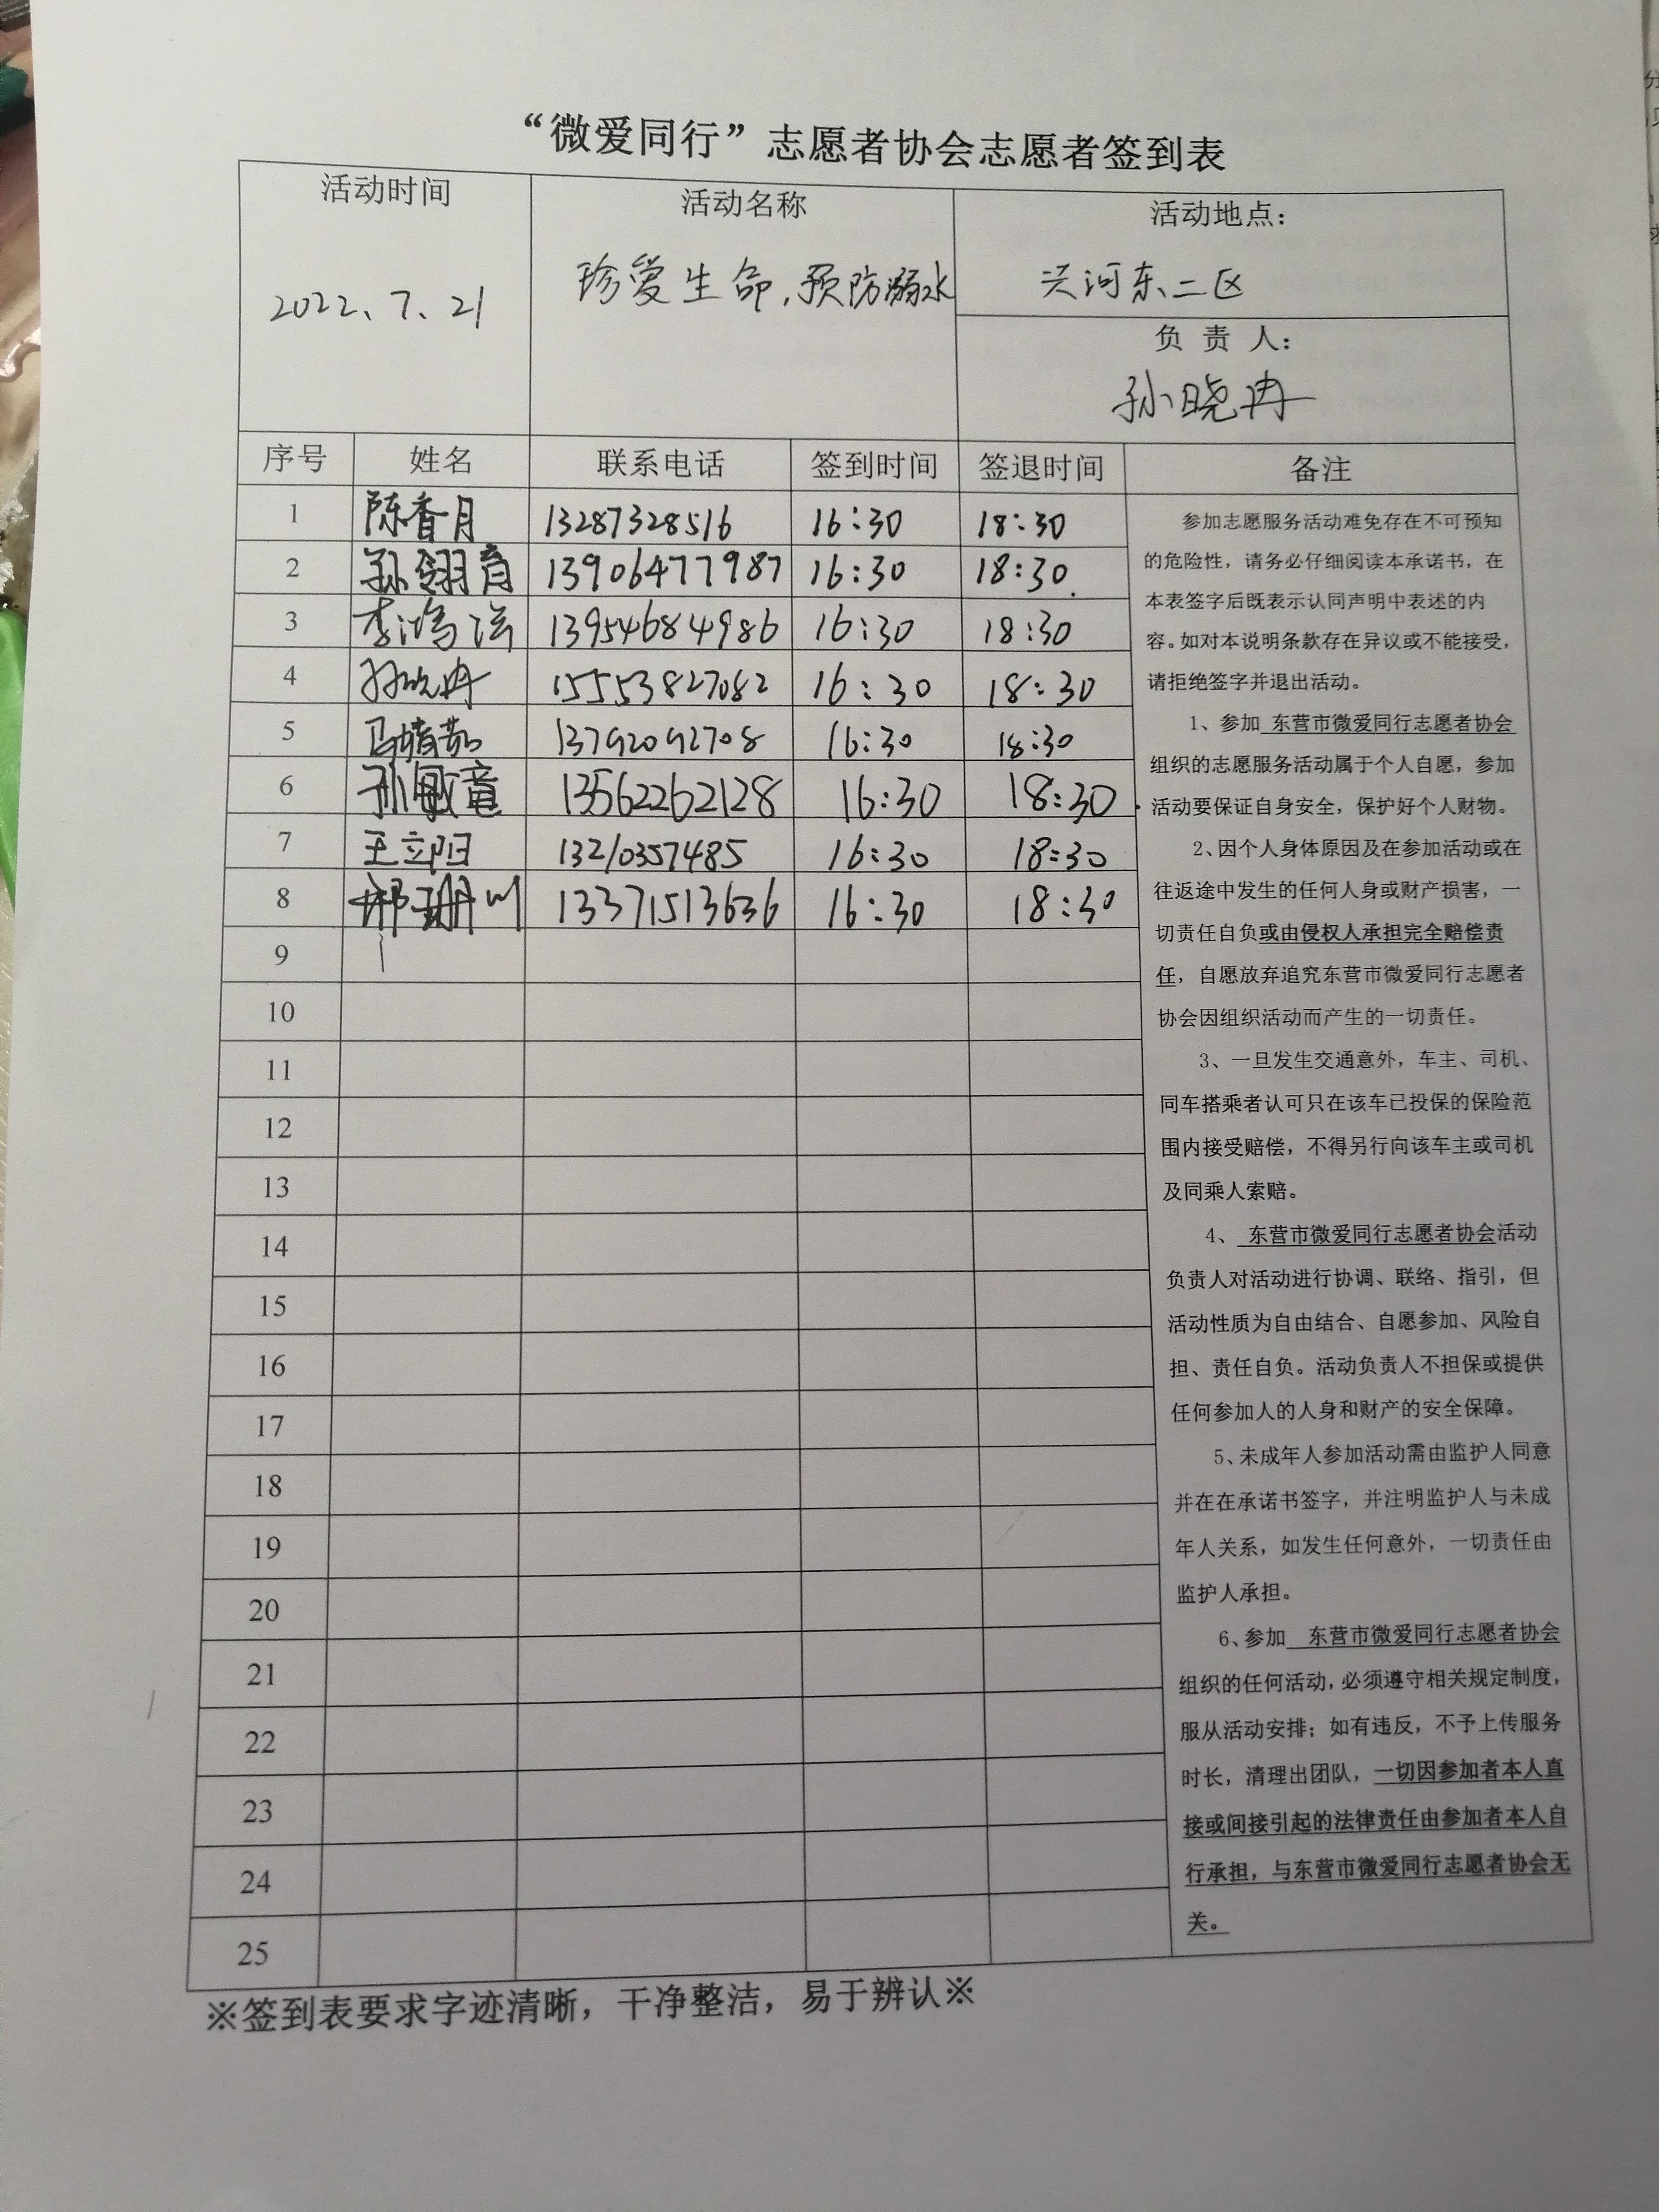 “微爱同行”志愿者协会志愿者签到表
活动时间 活动名称 活动地点：
2022、7、21 珍爱生命，预防溺水 兴河东二区
负 责 人：
孙晓冉
序号 姓名 联系电话 签到时间 签退时间 备注
1 陈香月 13287328516 16:30 18:30
2 孙翎育 13906477987 16:30 18:30
3 李鸿 13954684986 16:30 18:30
4 孙晓冉 15553827082 16:30 18:30
5 马婧茹 13792092708 16:30 18:30
6 孙敏 13562262128 16:30 18:30
7 王立阳 13210357485 16:30 18:30
8 珊 13371513636 16:30 18:30
9
10
11
12
13
14
15
16
17
18
19
20
21
22
23
24
25
参加志愿服务活动难免存在不可预知
的危险性，请务必仔细阅读本承诺书，在
本表签字后既表示认同声明中表述的内
容。如对本说明条款存在异议或不能接受，
请拒绝签字并退出活动。
1、参加 东营市微爱同行志愿者协会
组织的志愿服务活动属于个人自愿，参加
活动要保证自身安全，保护好个人财物。
2、因个人身体原因及在参加活动或在
往返途中发生的任何人身或财产损害，一
切责任自负或由侵权人承担完全赔偿责
任，自愿放弃追究东营市微爱同行志愿者
协会因组织活动而产生的一切责任。
3、一旦发生交通意外，车主、司机、
同车搭乘者认可只在该车已投保的保险范
围内接受赔偿，不得另行向该车主或司机
及同乘人索赔。
4、 东营市微爱同行志愿者协会活动
负责人对活动进行协调、联络、指引，但
活动性质为自由结合、自愿参加、风险自
担、责任自负。活动负责人不担保或提供
任何参加人的人身和财产的安全保障。
5、未成年人参加活动需由监护人同意
并在在承诺书签字，并注明监护人与未成
年人关系，如发生任何意外，一切责任由
监护人承担。
6、参加 东营市微爱同行志愿者协会
组织的任何活动，必须遵守相关规定制度，
服从活动安排；如有违反，不予上传服务
时长，清理出团队，一切因参加者本人直
接或间接引起的法律责任由参加者本人自
行承担，与东营市微爱同行志愿者协会无
关。
※签到表要求字迹清晰，干净整洁，易于辨认※